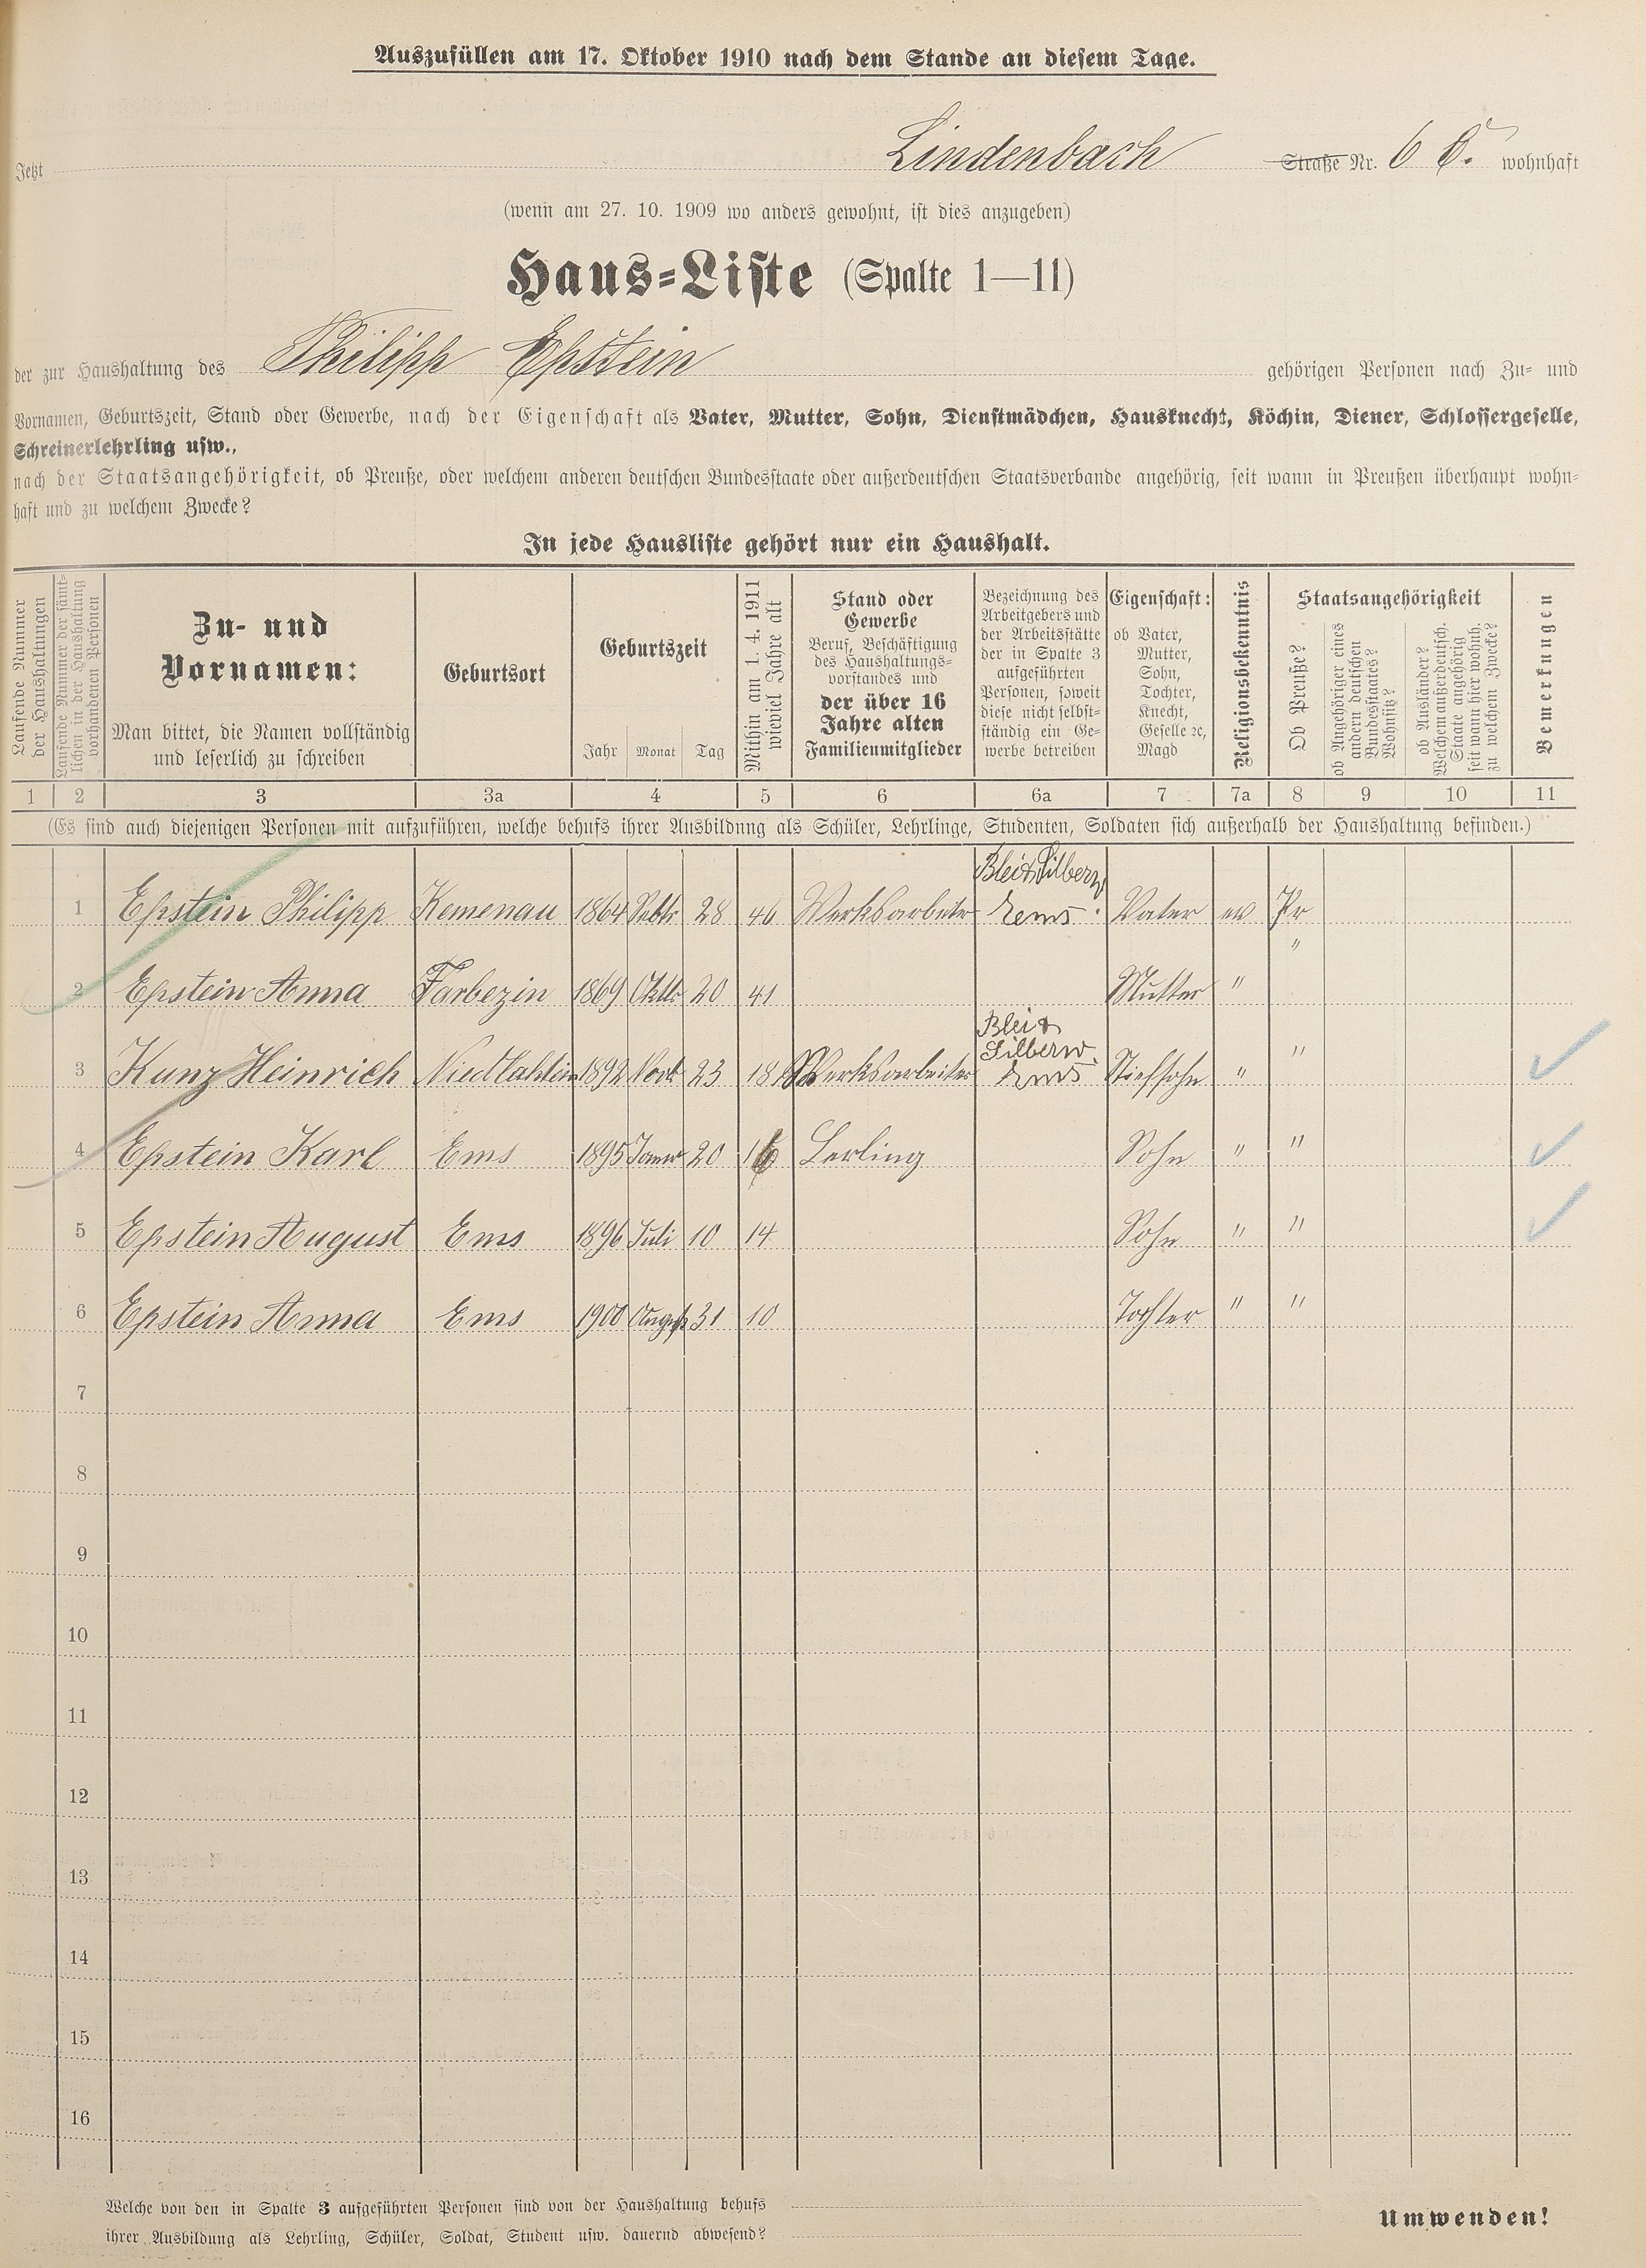 Auszufüllen am 17. Oktober 1910 nach dem Stande an diesem Tage.
Jetzt Lindenbach Straße Nr. 6 wohnhaft
(wenn am 27. 10. 1909 wo anders gewohnt, ist dies anzugeben)
Haus-Liste (Spalte 1—11)
der zur Haushaltung des Philipp Epstein gehörigen Personen nach Zu- und
Vornamen, Geburtszeit, Stand oder Gewerbe, nach der Eigenschaft als Vater, Mutter, Sohn, Dienstmädchen, Hausknecht, Köchin, Diener, Schlossergeselle,
Schreinerlehrling usw.,
nach der Staatsangehörigkeit, ob Preuße, oder welchem anderen deutschen Bundesstaate oder außerdeutschen Staatsverbande angehörig, seit wann in Preußen überhaupt wohn-
haft und zu welchem Zwecke?
In jede Hausliste gehört nur ein Haushalt.
Laufende Nummer
der Haushaltungen
Laufende Nummer der sämt-
lichen in der Haushaltung
vorhandenen Personen
Zu- und
Vornamen:
Man bittet, die Namen vollständig
und leserlich zu schreiben
Geburtsort
Geburtszeit
Jahr Monat Tag
Mithin am 1. 4. 1911
wieviel Jahre alt
Stand oder
Gewerbe
Beruf, Beschäftigung
des Haushaltungs-
vorstandes und
der über 16
Jahre alten
Familienmitglieder
Bezeichnung des
Arbeitgebers und
der Arbeitsstätte
der in Spalte 3
aufgeführten
Personen, soweit
diese nicht selbst-
ständig ein Ge-
werbe betreiben
Eigenschaft:
ob Vater,
Mutter,
Sohn,
Tochter,
Knecht,
Geselle ꝛc,
Magd
Religionsbekenntnis
Staatsangehörigkeit
Ob Preuße?
ob Angehöriger eines
andern deutschen
Bundesstaates?
Wohnsitz?
ob Ausländer?
Welchem außerdeutsch.
Staate angehörig
seit wann hier wohnh.
zu welchem Zwecke?
Bemerkungen
1 2 3 3a 4 5 6 6a 7 7a 8 9 10 11
(Es sind auch diejenigen Personen mit aufzuführen, welche behufs ihrer Ausbildung als Schüler, Lehrlinge, Studenten, Soldaten sich außerhalb der Haushaltung befinden.)
Blei & Silberw
1 Epstein Philipp Kemenau 1864 Sebtr 28 46 Werksarbeiter Ems Vater ev Pr
2 Epstein Anna Farbezin 1869 Oktb 20 41 Mutter " "
Blei &
Silberw.
3 Kunz Heinrich Niedlahnstein 1892 Novb 23 18 Werksarbeiter Ems Stiefsohn " "
4 Epstein Karl Ems 1895 Janur 20 16 Lerling Sohn " "
5 Epstein August Ems 1896 Juli 10 14 Sohn " "
6 Epstein Anna Ems 1900 August 31 10 Tochter " "
7
8
9
10
11
12
13
14
15
16
Welche von den in Spalte 3 aufgeführten Personen sind von der Haushaltung behufs
ihrer Ausbildung als Lehrling, Schüler, Soldat, Student usw. dauernd abwesend?
Umwenden!